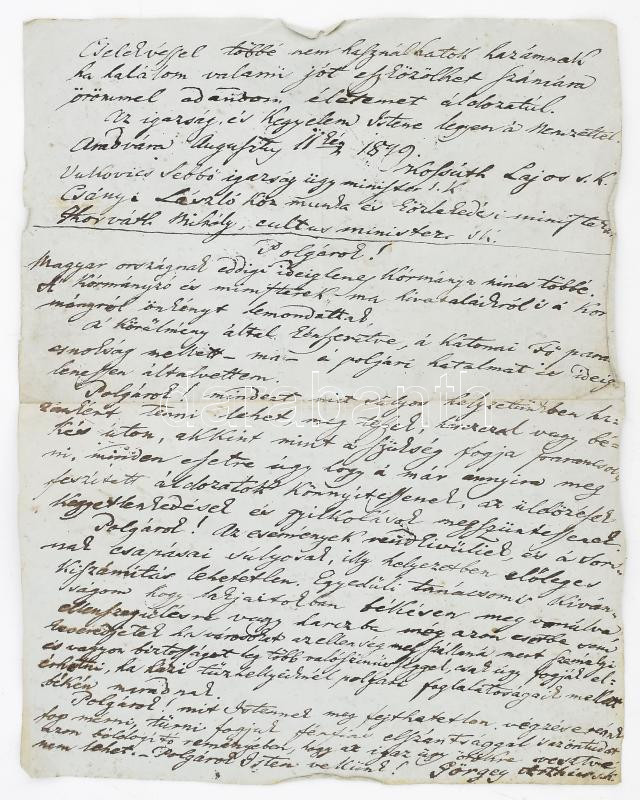 Cselekvéssel többé nem használhatok hazámnak
ha halálom valami jót eszközölhet számára
örömmel adandom életemet áldozatul.
Az igazság, és Kegyelem Istene legyen á Nemzettel.
Aradvara Augusztus 11kén 1849. Kossúth Lajos s. k.
Vukovics Sebő igazság ügy minister s. k.
Csányi László köz munka és közlekedesi minister
Horváth Mihály, cultus minister sk.
Polgárok!
Magyar országnak eddigi ideiglenes Kormánya nincs többé.
A Kormányzó és ministerek ma hivatalaikról s á kor
mányról önkényt lemondottak.
a körülmény által kénszerítve, á katonai Fő paran
csnokság mellett – ma – á polgári hatalmat is ideig
lenessen általvettem.
Polgárok! mindezt mit súlyos helyzetünkben ha
zánkért tenni lehet meg teszek, harczal vagy bé-
kés úton, akkint mint a szükség fogja parancsol
ni, minden esetre ugy hogy á már annyira meg
feszített áldozatok könnyitessenek, az üldözések
Kegyetlenkedések és gyilkolások megszüntessenek.
Polgárok! Az események rendkivüliek és á sors
nak csapásai sulyosak, illy helyzetben előleges
kiszámitás lehetetlen. Egyedüli tanácsom s kiván-
ságom hogy lakjaitokban békésen meg vonulva
ellenszegülésre vagy harczba még azon esetbe sem
keveredjetek ha várostok az ellenség megszállaná mert személyi
és vagyon biztosságot leg több valószinűséggel, csak úgy fogják el-
érhetni, ha házi tűzhelyeiknél polgári foglalatosságaik mellett
békén maradnak.
Polgárok! mit Istennek meg fejthetetlen végzése reánk
fog mérni, tűrni fogjuk férfias elszántsággal s az öntudat
azon boldogitó reményében, hogy az igaz ügy örökre vesztve
nem lehet. – Polgárok Isten velünk! Görgey Arthúr sk.
darabanth